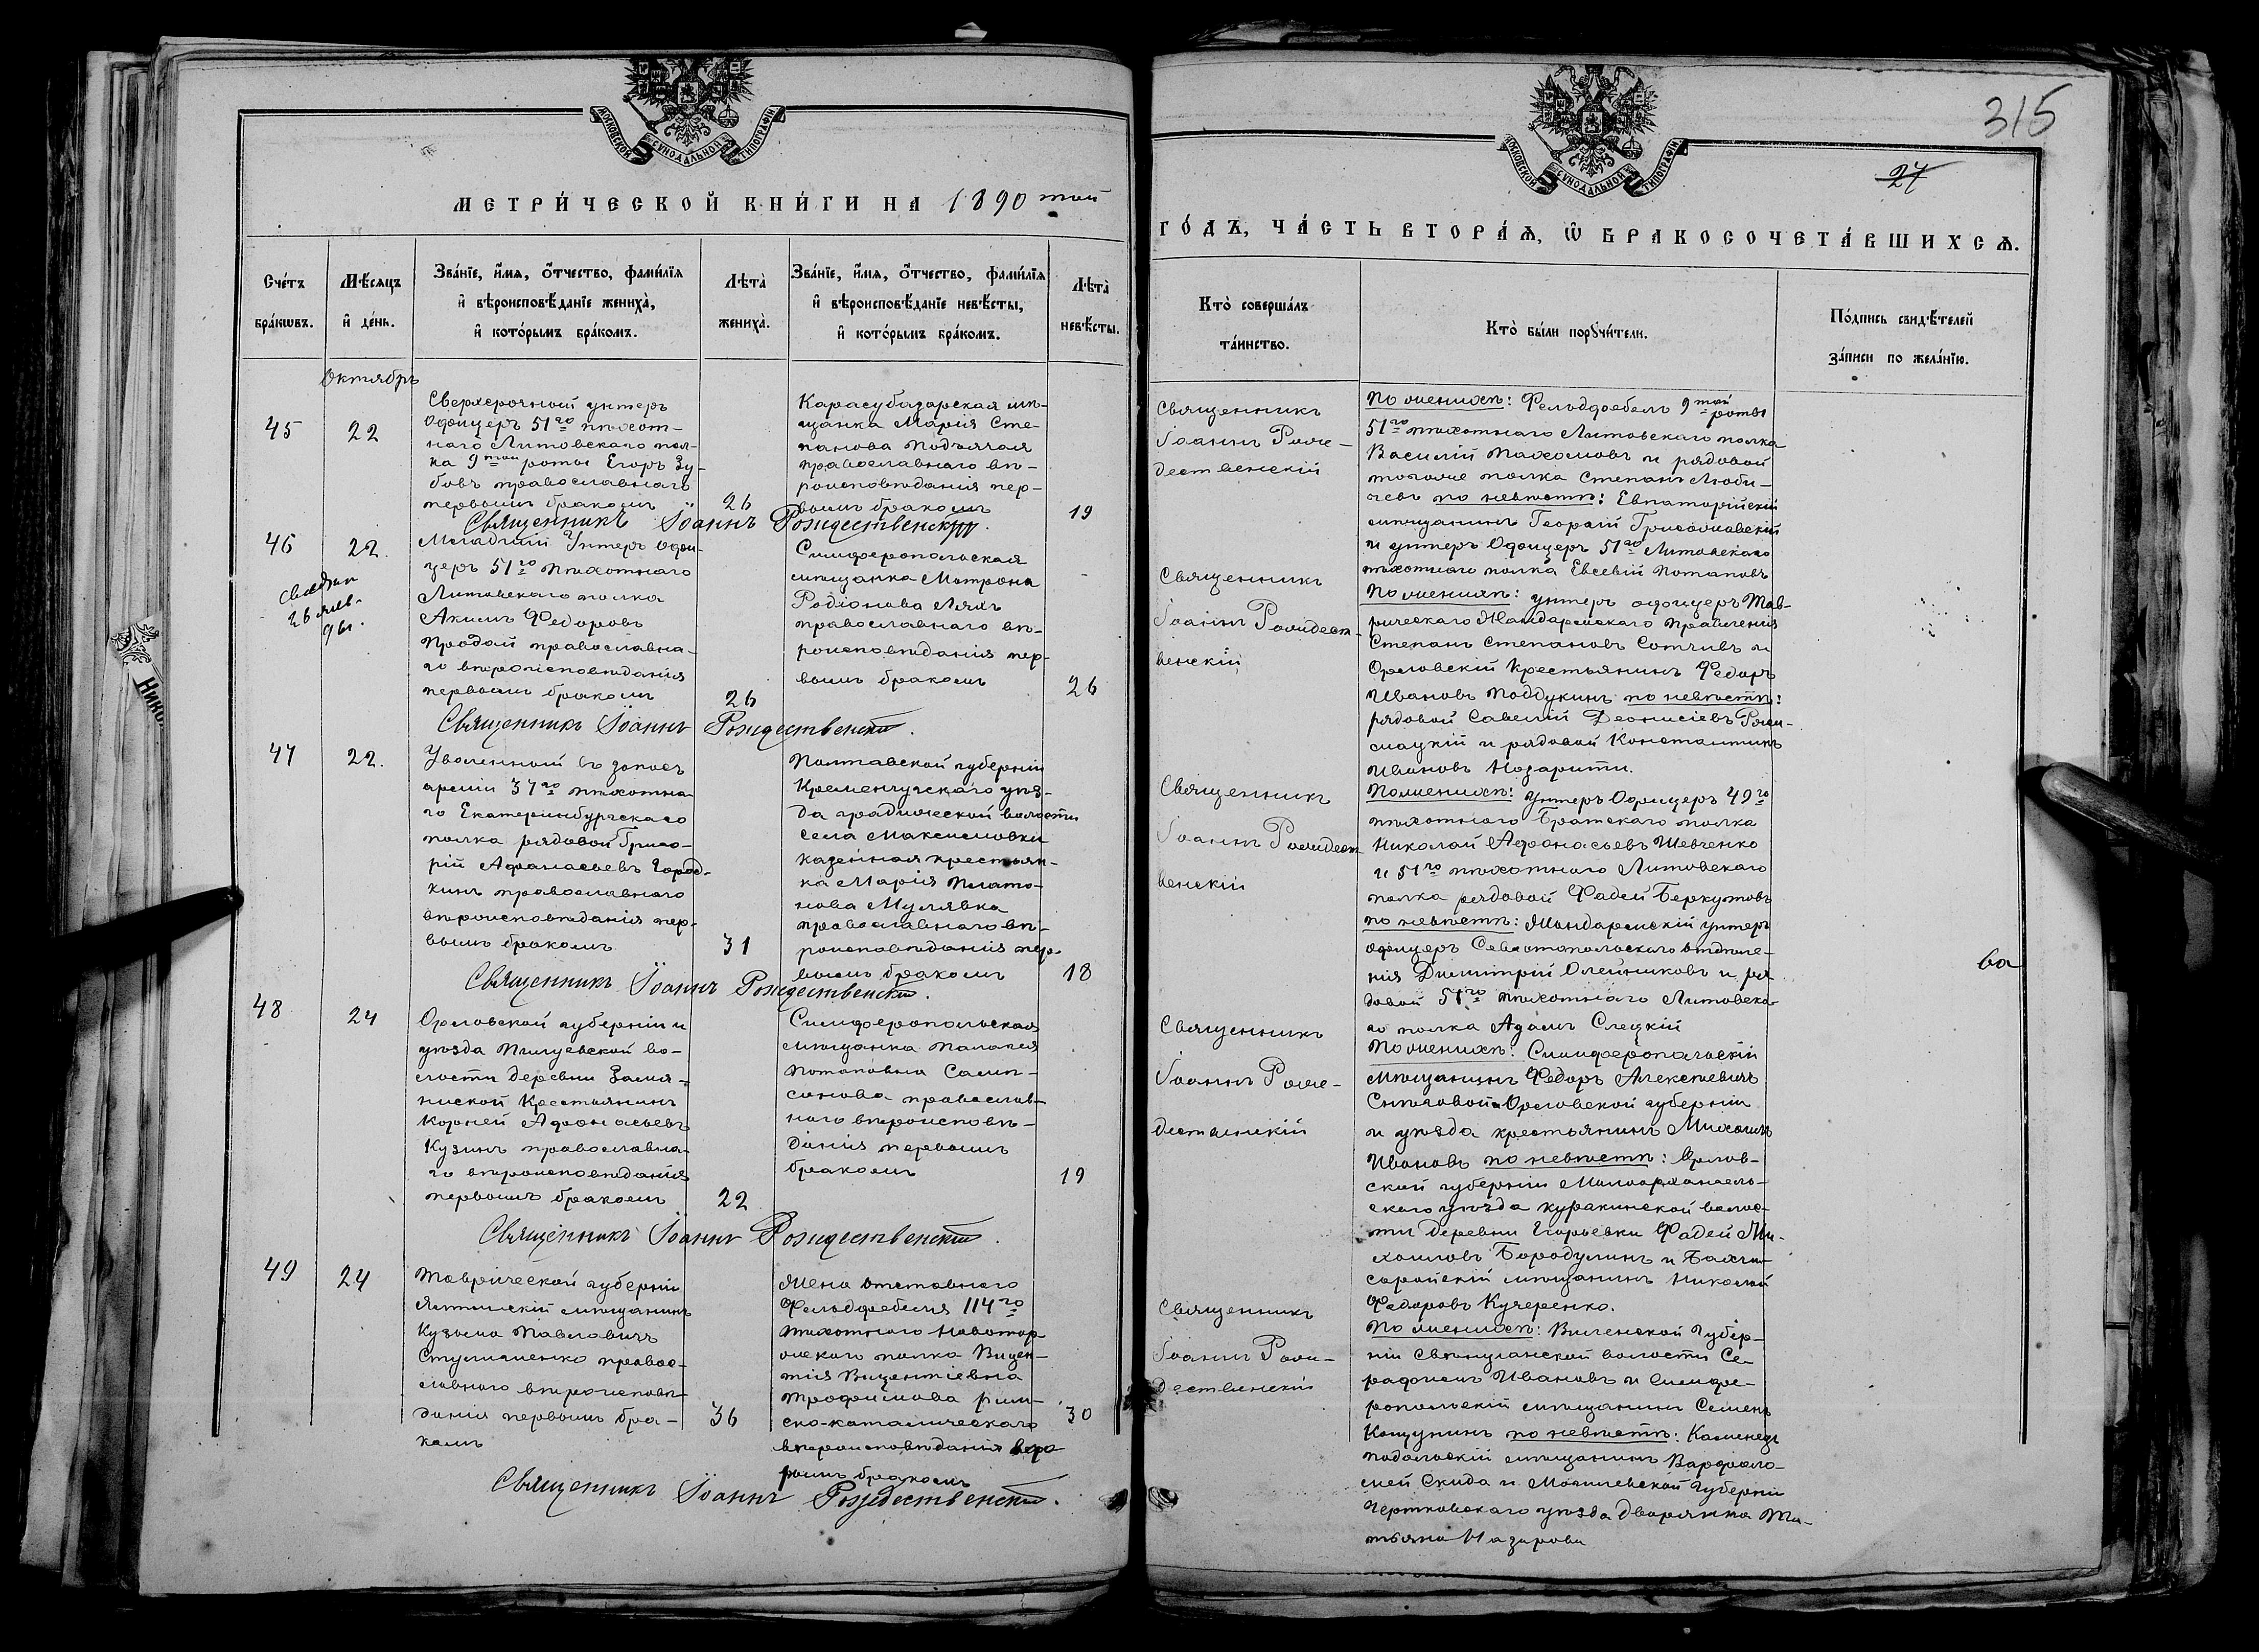 МОСКОВСКОЙ СѴНОДАЛЬНОЙ ТИПОГРАФІИ
МЕТРИ́ЧЕСКОЙ КНИ́ГИ НА 1890 той
Сче́тъ бра́кѡвъ.
Мѣ́сяцъ и҆ де́нь.
Зва́нїе, и҆́мѧ, о҆́тчество, фами́лїѧ
и҆ вѣроисповѣ́данїе жениха̀,
и҆ кото́рымъ бра́комъ.
Лѣта̀ жениха̀.
Зва́нїе, и҆́мѧ, о҆́тчество, фами́лїѧ
и҆ вѣроисповѣ́данїе невѣ́сты,
и҆ кото́рымъ бра́комъ.
Лѣта̀ невѣ́сты.
Октябрь
45
22
Сверхсрочный унтеръ
Офицеръ 51го пѣхот-
наго Литовскаго пол-
ка 9той роты Егоръ Зу-
бовъ православнаго
первымъ бракомъ
26
Карасубазарская мѣ-
щанка Марія Сте-
панова Подъячая
православнаго вѣ-
роисповѣданія пер-
вымъ бракомъ
19
Священникъ Іоаннъ Рождественскій.
46
22.
Младшій Унтеръ Офи-
церъ 51го пѣхотнаго
Литовскаго полка
Акимъ Федоровъ
Продай православна-
го вѣроисповѣданія
первымъ бракомъ
26
Симферопольская
мѣщанка Матрона
Родіонова Ляхъ
православнаго вѣ-
роисповѣданія пер-
вымъ бракомъ
26
Священникъ Іоаннъ Рождественскій.
47
22.
Уволенный въ запасъ
арміи 37го пѣхотна-
го Екатеринбургскаго
полка рядовой Григо-
рій Афанасьевъ Город-
кинъ православнаго
вѣроисповѣданія пер-
вымъ бракомъ
31
Полтавской губерніи
Кременчугскаго уѣз-
да градижской волости
села Максимовки
казенная крестьян-
ка Марія Плато-
нова Мулявка
православнаго вѣ-
роисповѣданія пер-
вымъ бракомъ
18
Священникъ Іоаннъ Рождественскій.
48
24
Орловской губерніи и
уѣзда во-
лости деревни
Крестьянинъ
Корней Афонасьевъ
Кузинъ православна-
го вѣроисповѣданія
первымъ бракомъ
22
Симферопольская
мѣщанка Палагея
Потаповна Самп-
сонова православ-
наго вѣроисповѣ-
данія первымъ
бракомъ
19
Священникъ Іоаннъ Рождественскій.
49
24
Таврической губерніи
Ялтинскій мѣщанинъ
Кузьма Павловичъ
правос-
лавнаго вѣроисповѣ-
данія первымъ бра-
комъ
36
Жена отставного
Фельдфебеля 114го
пѣхотнаго Новотор-
жскаго полка Викен-
тія Викентіевна
Трофимова рим-
ско-католическаго
вѣроисповѣданія
бракомъ
30
Священникъ Іоаннъ Рождественскій.
МОСКОВСКОЙ СѴНОДАЛЬНОЙ ТИПОГРАФІИ
315
27
ГО́ДЪ, ЧА́СТЬ ВТОРА́Ѧ, Ѡ҆ БРАКОСОЧЕТА́ВШИХСѦ.
Кто̀ соверша́лъ
та́инство.
Кто̀ бы́ли порꙋчи́тели.
По́дпись свидѣ́телей
за́писи по жела́нїю.
Священникъ
Іоаннъ Рож-
дественскій
По женихѣ: Фельдфебель 9той роты
51го пѣхотнаго Литовскаго полка
Василій Пахомовъ и рядовой
тогоже полка Степанъ Люби-
чевъ по невѣстѣ: Евпаторійскій
мѣщанинъ Георгій
и унтеръ Офицеръ 51го Литовскаго
пѣхотнаго полка Евсевій Потаповъ
Священникъ
Іоаннъ Рождест-
венскій
По женихѣ: унтеръ офицеръ Тав-
рическаго Жандармскаго Правленія
Степанъ Степановъ и
Орловскій Крестьянинъ Федоръ
Ивановъ Поддукинъ по невѣстѣ:
рядовой Савелій Деонисіевъ
и рядовой Константинъ
Ивановъ
Священникъ
Іоаннъ Рождест-
венскій
По женихѣ: Унтеръ Офицеръ 49го
пѣхотнаго Братскаго полка
Николай Афонасьевъ Шевченко
и 51го пѣхотнаго Литовскаго
полка рядовой Фадей Беркутовъ
по невѣстѣ: Жандармскій унтеръ
офицеръ Севастопольскаго отдѣле-
нія Димитрій Олейниковъ и ря
довой 51го пѣхотнаго Литовска-
го полка Адамъ Слецкій
Священникъ
Іоаннъ Рож-
дественскій
По женихѣ: Симферопольскій
мѣщанинъ Федоръ Алексѣевичъ
Снѣговой и Орловской губерніи
и уѣзда крестьянинъ Михаилъ
Ивановъ по невѣстѣ: Орлов-
ской губерніи Малоархангель-
скаго уѣзда куракинской волос-
ти деревни Егорьевки Фадей Ми-
хаиловъ Бородулинъ и Бахчи-
сарайскій мѣщанинъ Николай
Федоровъ Кучеренко.
Священникъ
Іоаннъ Рож-
дественскій
По женихѣ: Виленской Губер-
ніи волости Се-
рафимъ Ивановъ и Симфе-
ропольскій мѣщанинъ Семенъ
по невѣстѣ: Каменецъ
подольскій мѣщанинъ Варфоло-
мей Скида и Могилевской Губерніи
уѣзда дворянка Та-
тьяна Назарова